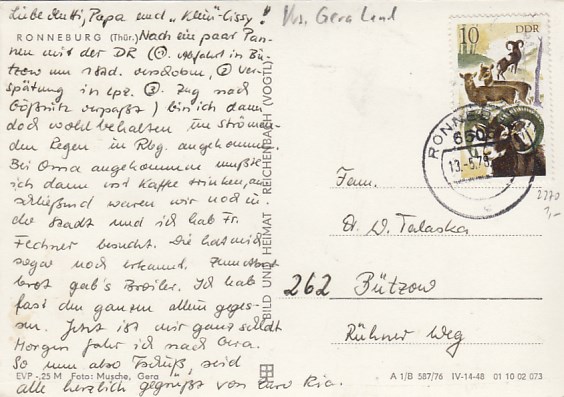 Liebe Mutti, Papa und „Klein-Cissy"!
RONNEBURG (Thür.) Nach ein paar Pan-
nen mit der DR (1. Abfahrt in Bü-
tzow um 1 Std. verschoben, 2 Ver-
spätung in Lpz. 3. Zug nach
Gößnitz verpaßt) bin ich dann
doch wohlbehalten im strömen-
den Regen in Rbg. angekommen.
Bei Oma angekommen mußte
ich dann erst Kaffee trinken, an-
schließend waren wir noch in
der Stadt und ich hab Fr.
Fechner besucht. Die hat mich
sogar noch erkannt. Zum Abend-
brot gab's Broiler. Ich hab
fast den ganzen allein geges-
sen. Jetzt ist mir ganz schlecht
Morgen fahr ich nach Gera.
So nun also Tschüß, seid
alle herzlich gegrüßt von Eurer Ria.
EVP -,25 M Foto: Musche, Gera
BILD UND HEIMAT REICHENBACH (VOGTL)
Vs. Gera Land
10 DDR
RONNEBURG
13.-5.78
2270
1,-
Fam.
Dr. W. Talaska
262 Bützow
Rühner Weg
A 1/B 587/76 IV-14-48 01 10 02 073